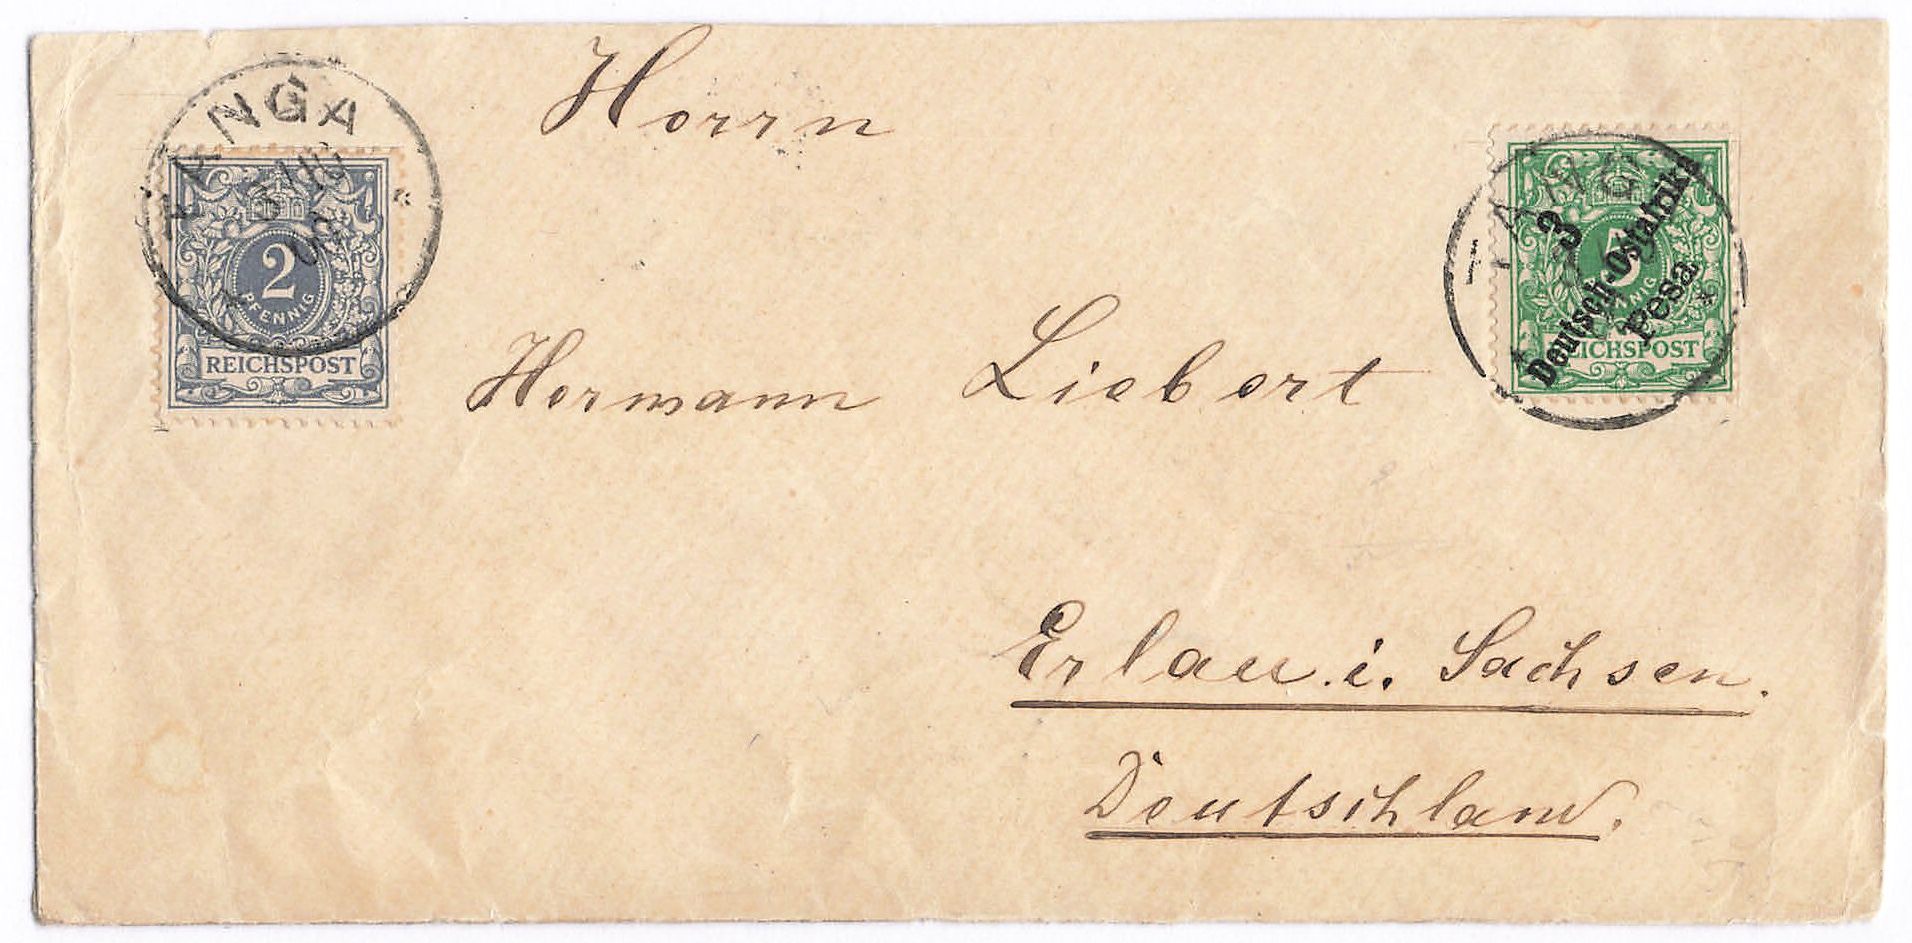 Herrn
Hermann Liebert
Erlau i. Sachsen.
Deutschland.
TANGA
2
PFENNIG
REICHSPOST
TANGA
3
5
Deutsch-Ostafrika
Pesa
REICHSPOST